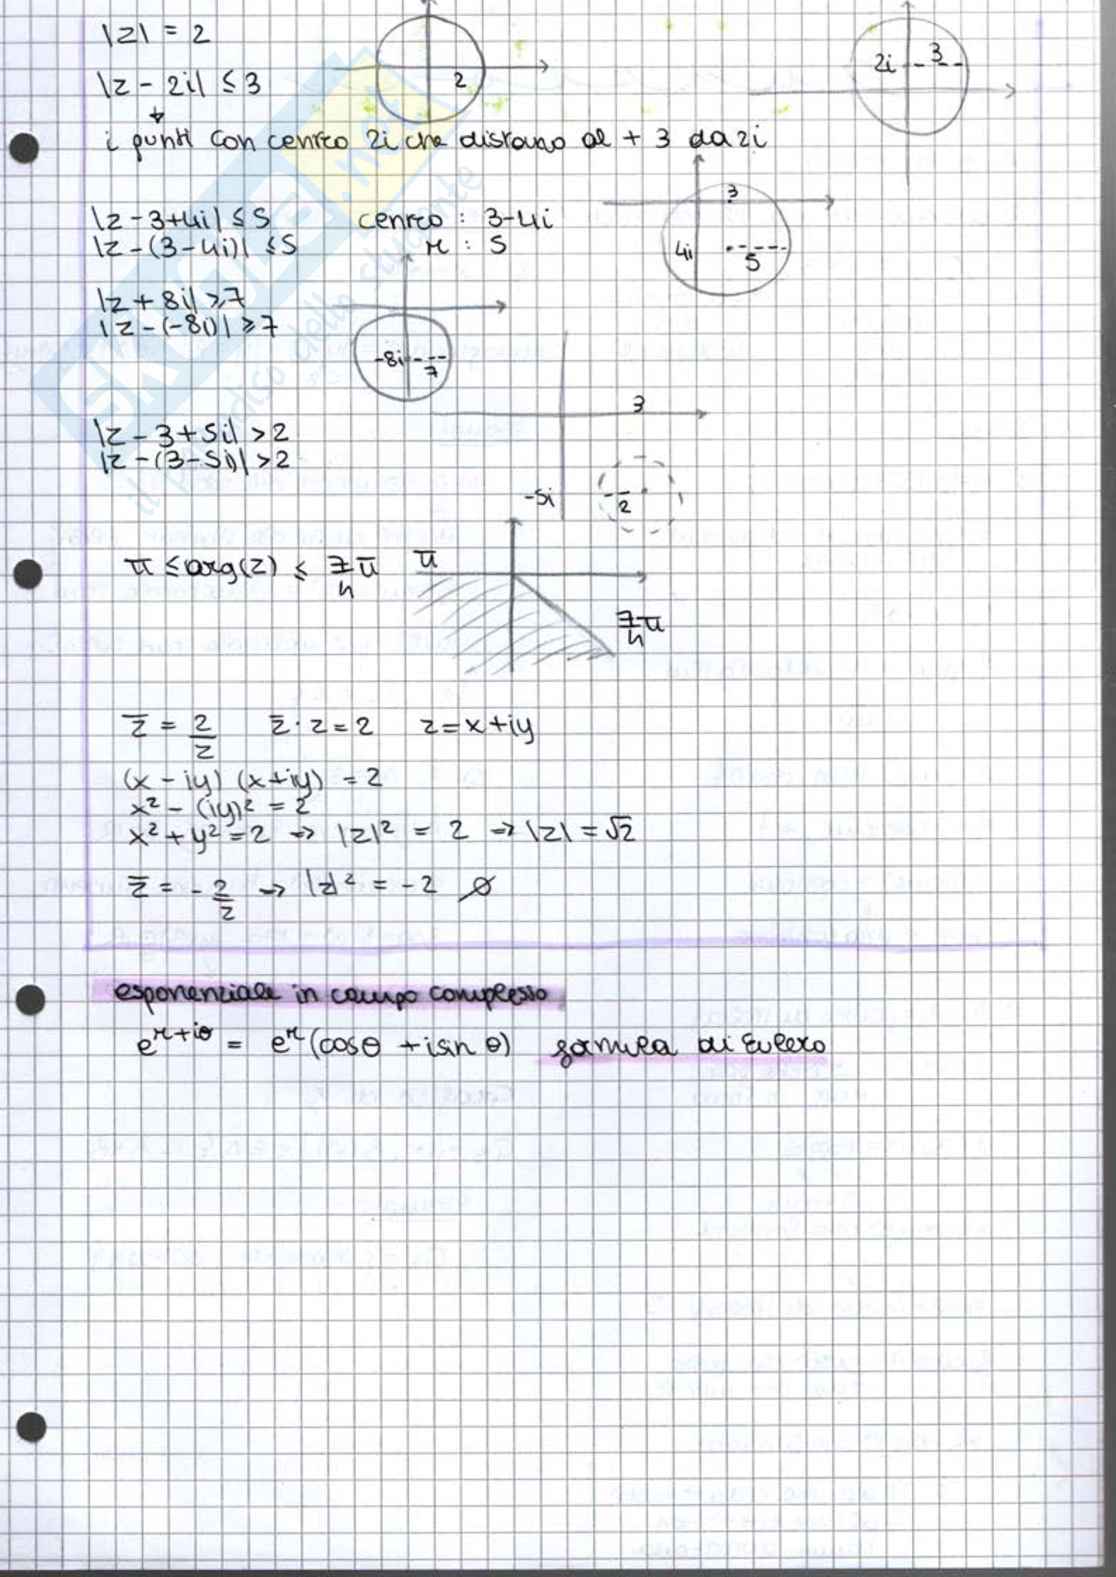 |z| = 2
2
|z - 2i| ≤ 3
2i 3
i punti con centro 2i che distano al + 3 da 2i
|z - 3+4i| ≤ 5 centro : 3-4i
|z - (3-4i)| ≤ 5 r : 5
3
4i 5
|z + 8i| ≥ 7
|z - (-8i)| ≥ 7
-8i 7
|z - 3 + 5i| > 2
|z - (3-5i)| > 2
3
-5i 2
π ≤ arg(z) ≤ 7/4 π π
7/4 π
z̅ = 2/z z̅ · z = 2 z = x+iy
(x - iy) (x+iy) = 2
x² - (iy)² = 2
x² + y² = 2 → |z|² = 2 → |z| = √2
z̅ = - 2/z → |z|² = -2 ∅
esponenziale in campo complesso
e^(r+iθ) = e^r (cosθ + i sin θ) formula di Eulero
SKUOLA.net